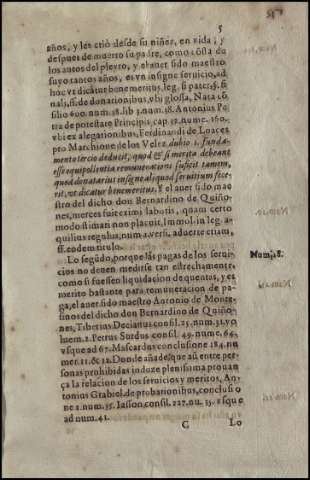 5
años, y les crió desde su niñez, en vida; y
despues de muerto su padre, como cósta de
los autos del pleyto, y el auer sido maestro
suyo tantos años, es vn insigne seruicio, ad
hoc vt dicatur bene meritus, leg. si pater, §. fi
nali, ff. de donationibus, vbi glossa, Nata cō
silio 600. num. 18. lib. 3. num. 18. Antonius Pe
tra de potestate Principis, cap. 32. nume. 160.
vbi ex alegationibus, Ferdinandi de Loaces
pro Marchione de los Velez dubio 1. funda-
mento tercio deducit, quod etsi merita debeant
esse equipolentia remunerationi suficit tamen,
quod donatarius insigne aliquod seruitium fece-
rit, vt dicatur benemeritus. Y el auer sido mae
stro del dicho don Bernardino de Quiño-
nes, merces fuit eximi laboris, quam certo
modo estimari non placuit, Immol. in leg. a-
quilius regulus, num. 2. versi, aduerte etiam,
ff. eodem titulo.
Lo segúdo, porque las pagas de los serui-
cios no deuen medirse tan estrechamente,
como si fuessen liquidacion de quentas, y es
merito bastante para remuneracion de pa-
ga, el auer sido maestro Antonio de Monte-
sinos del dicho don Bernardino de Quiño-
nes, Tiberius Decianus consil. 25. num. 31. vo
luem. 2. Petrus Surdus consil. 49. nume. 64.
vsque ad 67. Mascardus conclusione 184. nu
mer. 11. & 12. Donde añade que aū entre per-
sonas prohibidas induze plenissima prouan
ça la relacion de los seruicios y meritos, An-
tonius Gabiel. de probationibus, conclusi o
ne 1. num. 35. Iasson consil. 227. nu. 15. vsque
ad num. 41.
Num. 18.
C Lo